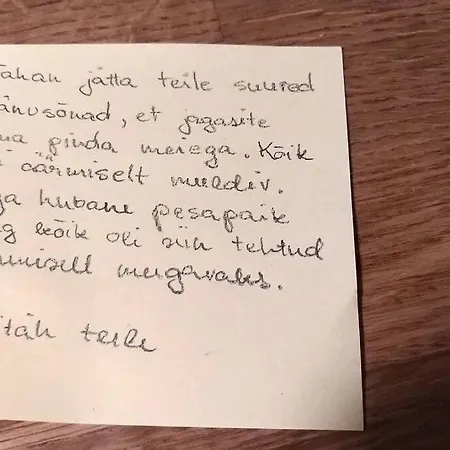 tahan jätta teile suured
änusõnad, et jagasite
ma pinda meiega. Kõik
i äärmiselt meeldiv.
ga hubane pesapaik
g kõik oli siin tehtud
imisell mugavaks.
itäh teile